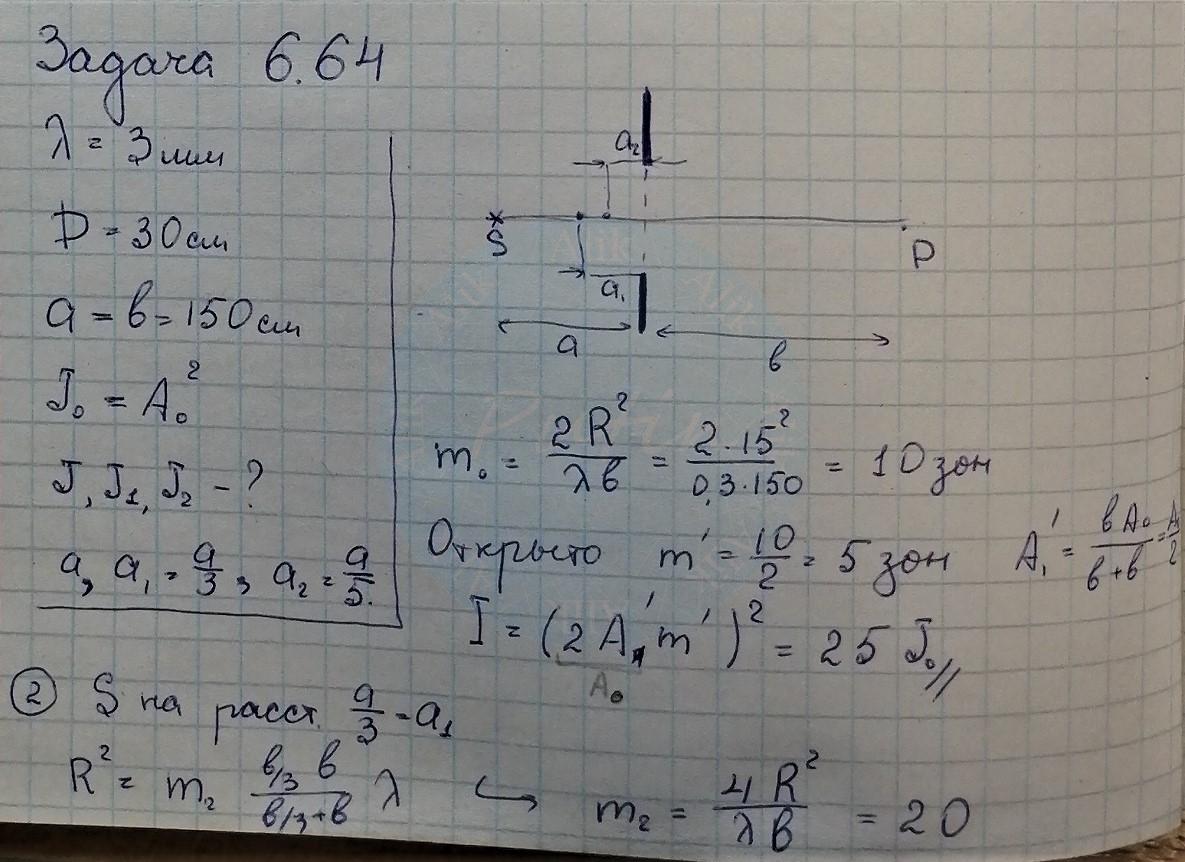 Задача 6.64
λ = 3мм
D = 30см
a = b = 150см
J₀ = A₀²
J, J₁, J₂ - ?
a, a₁ = a/3, a₂ = a/5.
a₂
S
P
a₁
a
b
m₀ = 2R²/λb = 2·15²/0,3·150 = 10 зон
Открыто m' = 10/2 = 5 зон A₁' = bA₀/b+b = A₀/2
I = (2A₁'m')² = 25 J₀//
A₀
② S на расст. a/3 - a₁
R² = m₂ b/3 b/b/3+b λ ↪ m₂ = 4R²/λb = 20